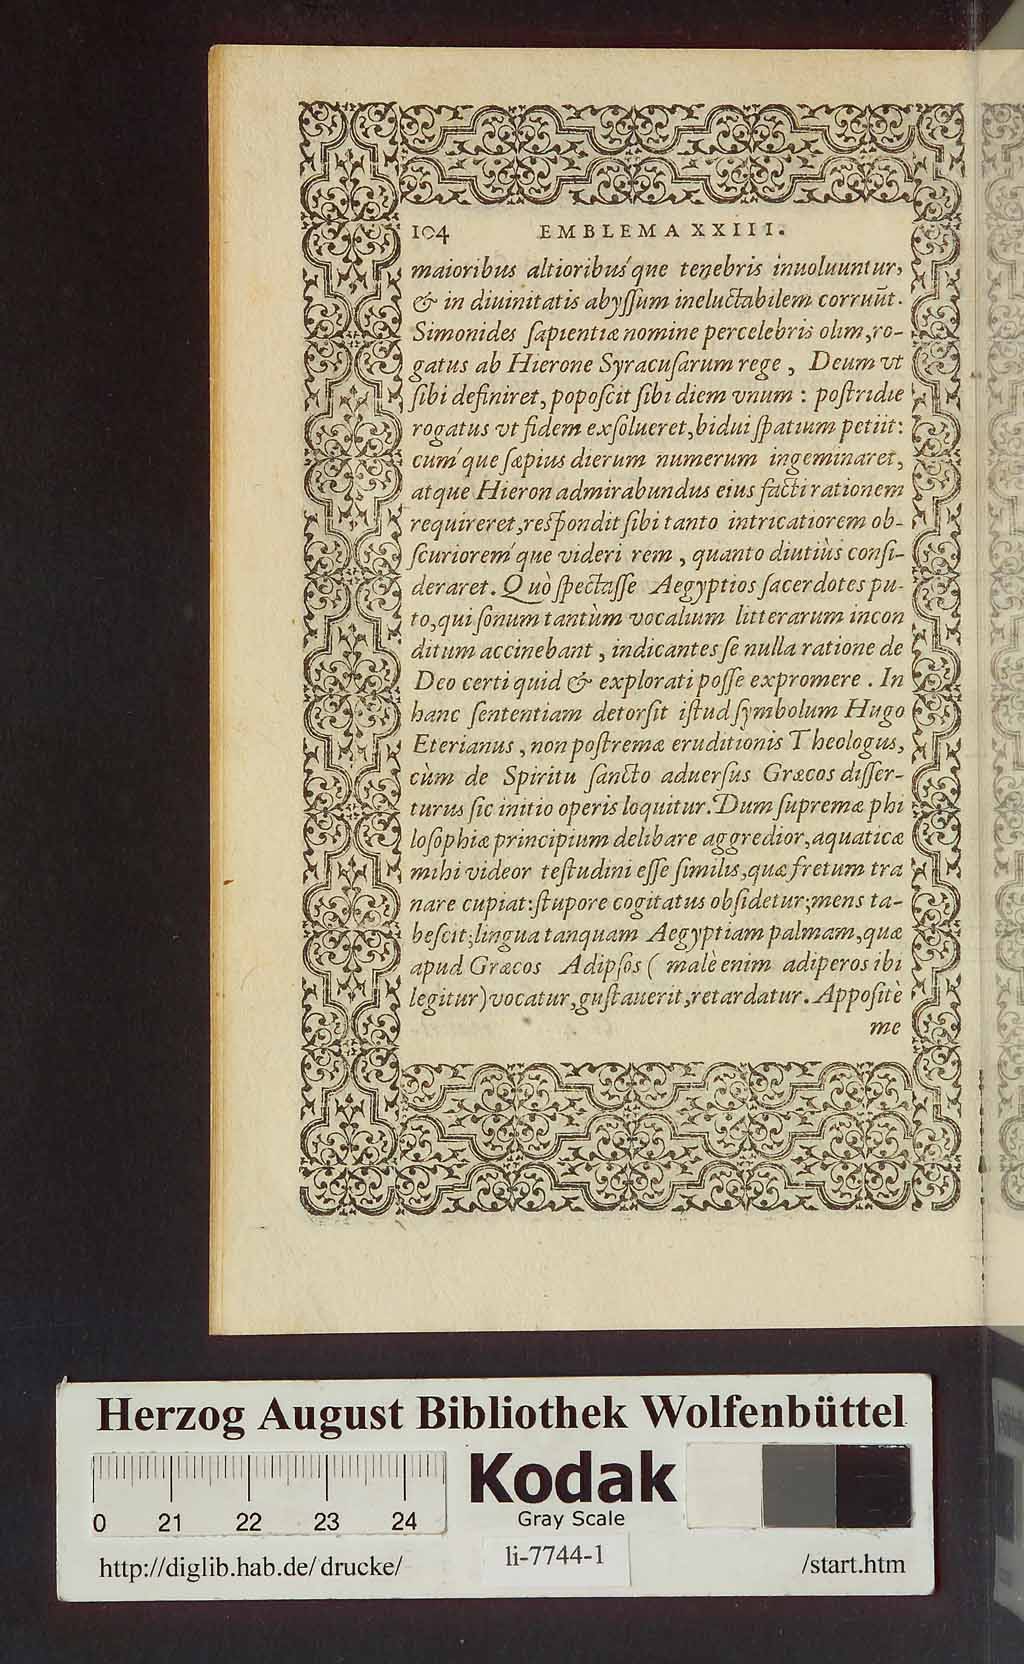 104 EMBLEMA XXIII.
maioribus altioribuśque tenebris inuoluuntur,
& in diuinitatis abyſſum ineluctabilem corruūt.
Simonides ſapientiæ nomine percelebris olim, ro-
gatus ab Hierone Syracuſarum rege , Deum vt
ſibi definiret, popoſcit ſibi diem vnum : poſtridie
rogatus vt fidem exſolueret, bidui ſpatium petiit:
cuḿque ſæpius dierum numerum ingeminaret,
atque Hieron admirabundus eius facti rationem
requireret, reſpondit ſibi tanto intricatiorem ob-
ſcurioreḿque videri rem , quanto diutiùs conſi-
deraret. Quò ſpectaſſe Aegyptios ſacerdotes pu-
to, qui ſonum tantùm vocalium litterarum incon
ditum accinebant , indicantes ſe nulla ratione de
Deo certi quid & explorati poſſe expromere . In
hanc ſententiam detorſit iſtud ſymbolum Hugo
Eterianus , non poſtremæ eruditionis Theologus,
cùm de Spiritu ſancto aduerſus Græcos diſſer-
turus ſic initio operis loquitur. Dum ſupremæ phi
loſophiæ principium delibare aggredior, aquaticæ
mihi videor teſtudini eſſe ſimilis, quæ fretum tra
nare cupiat: ſtupore cogitatus obſidetur; mens ta-
beſcit; lingua tanquam Aegyptiam palmam, quæ
apud Græcos Adipſos ( malè enim adiperos ibi
legitur) vocatur, guſtauerit, retardatur. Appoſitè
me
Herzog August Bibliothek Wolfenbüttel
0 21 22 23 24
Kodak
Gray Scale
http://diglib.hab.de/drucke/
li-7744-1
/start.htm